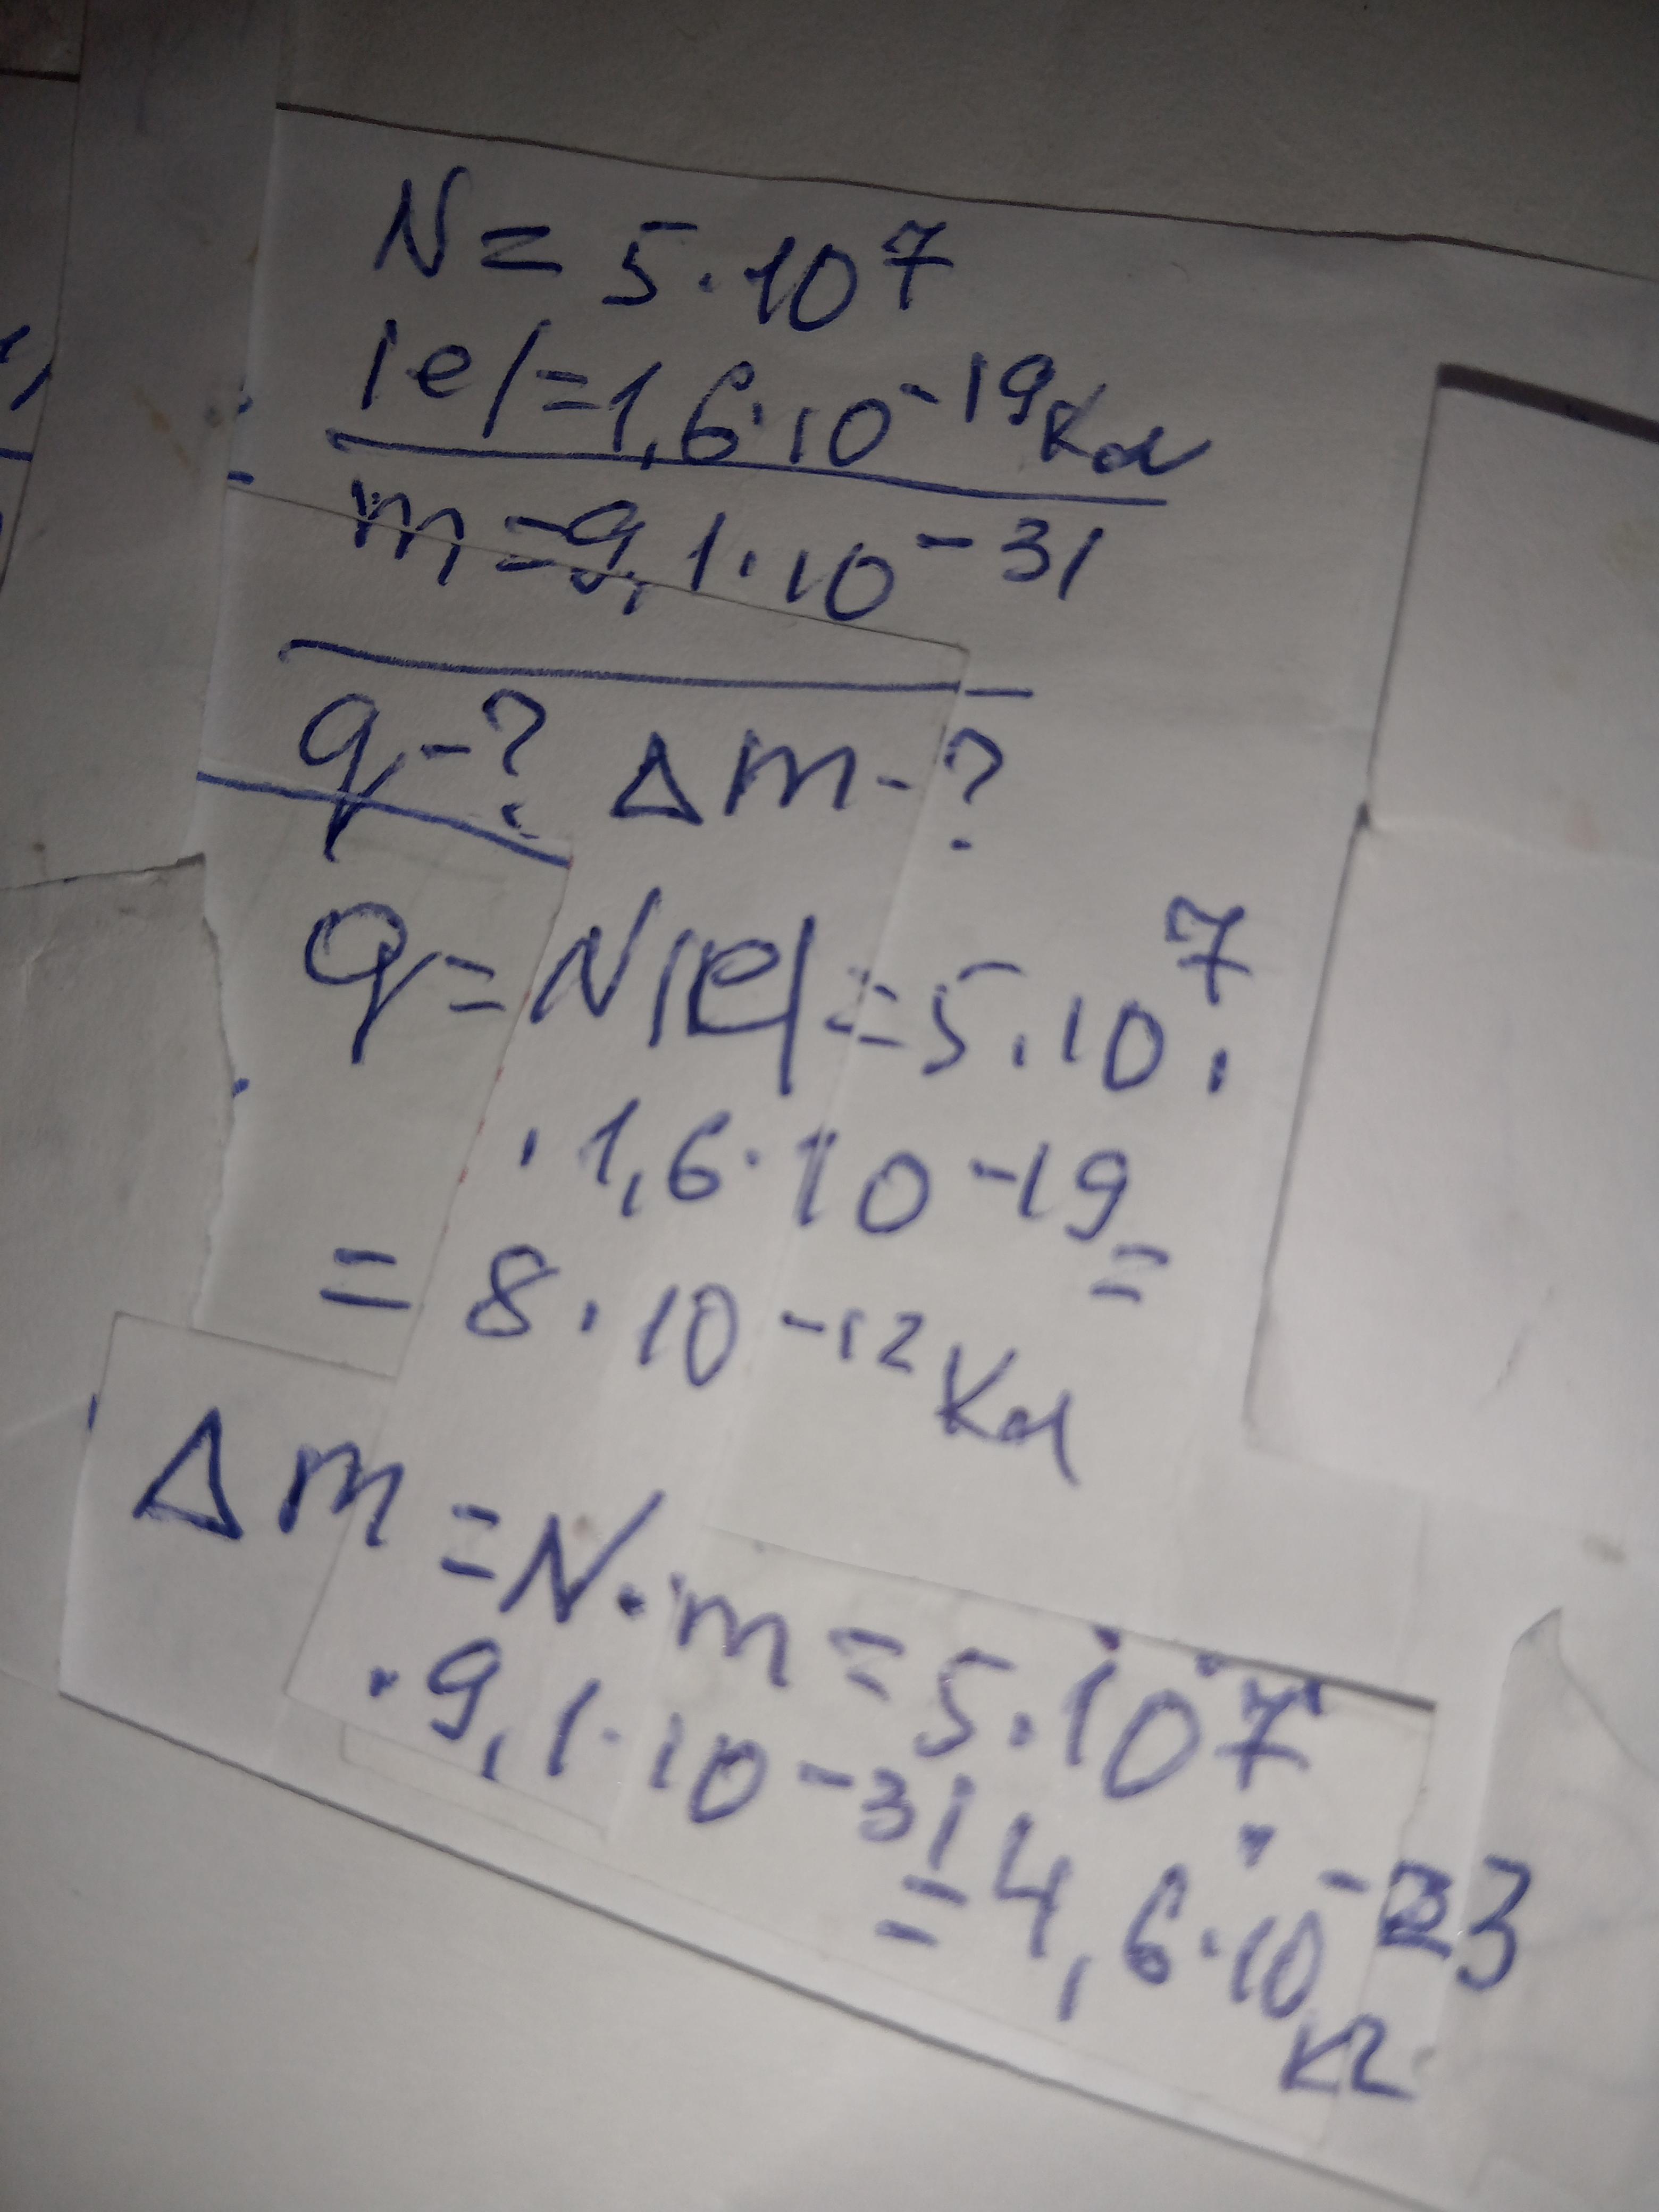 N = 5·10⁷
|e|=1,6·10⁻¹⁹Кл
m=9,1·10⁻³¹
q-? Δm-?
q=N|e|=5·10⁷·
·1,6·10⁻¹⁹=
= 8·10⁻¹²Кл
Δm=N·m=5·10⁷·
·9,1·10⁻³¹=4,6·10⁻²³
кг